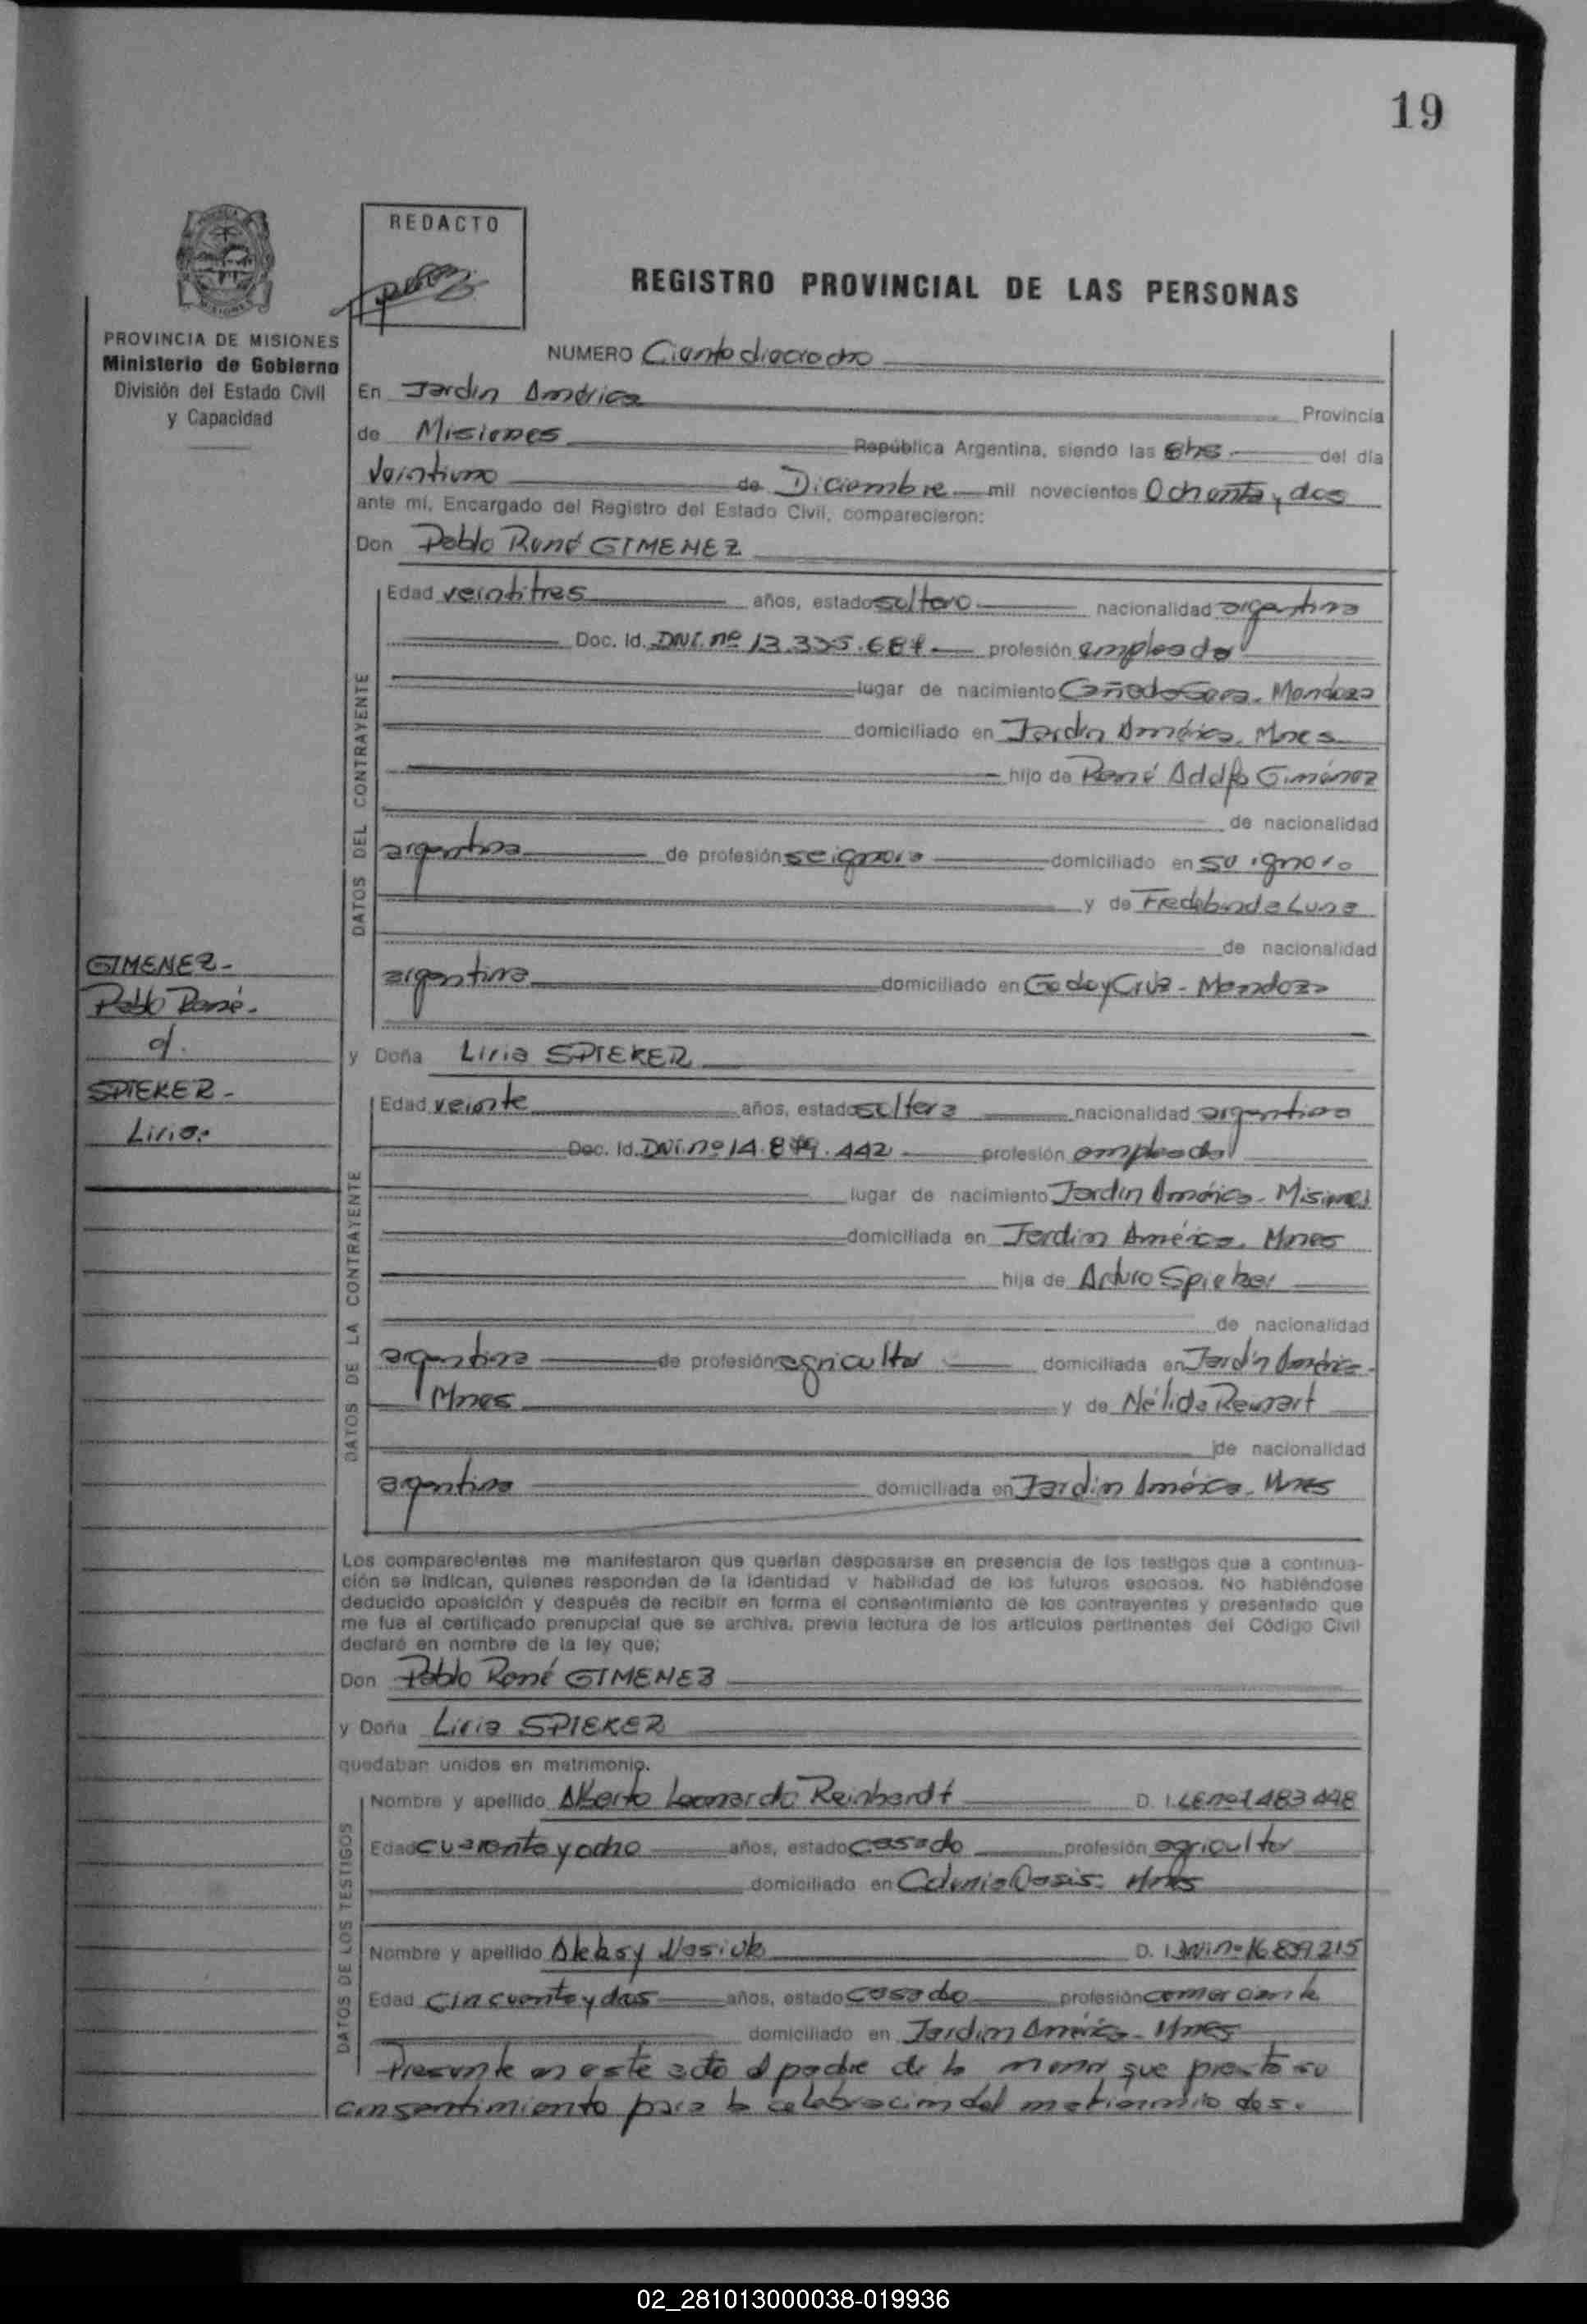 19
REDACTO
REGISTRO PROVINCIAL DE LAS PERSONAS
PROVINCIA DE MISIONES
Ministerio de Gobierno
División del Estado Civil
y Capacidad
NUMERO Ciento dieciocho
En Jardín América Provincia
de Misiones República Argentina, siendo las 8hs del día
Veintiuno de Diciembre mil novecientos Ochenta y dos
ante mí, Encargado del Registro del Estado Civil, comparecieron:
Don Pablo René GIMENEZ
DATOS DEL CONTRAYENTE
Edad veintitres años, estado soltero nacionalidad argentina
Doc. Id. DNI. nº profesión empleado
lugar de nacimiento Mendoza
domiciliado en Jardín América. Mnes
hijo de René Adolfo Giménez
de nacionalidad
argentina de profesión se ignora domiciliado en se ignora
y de Luna
de nacionalidad
argentina domiciliado en Godoy Cruz - Mendoza
GIMENEZ-
Pablo René-
c/.
SPIEKER-
Liria-
y Doña Liria SPIEKER
DATOS DE LA CONTRAYENTE
Edad veinte años, estado soltera nacionalidad argentina
Doc. Id. DNI. nº profesión empleada
lugar de nacimiento Jardín América - Misiones
domiciliada en Jardín América. Mnes
hija de Arturo Spieker
de nacionalidad
argentina de profesión agricultor domiciliada en Jardín América-
Mnes y de Nélida
de nacionalidad
argentina domiciliada en Jardín América. Mnes
Los comparecientes me manifestaron que querían desposarse en presencia de los testigos que a continua-
ción se indican, quienes responden de la identidad y habilidad de los futuros esposos. No habiéndose
deducido oposición y después de recibir en forma el consentimiento de los contrayentes y presentado que
me fue el certificado prenupcial que se archiva, previa lectura de los artículos pertinentes del Código Civil
declaré en nombre de la ley que;
Don Pablo René GIMENEZ
y Doña Liria SPIEKER
quedaban unidos en matrimonio.
DATOS DE LOS TESTIGOS
Nombre y apellido Alberto Leonardo Reinhardt D. I. LE nº
Edad cuarenta y ocho años, estado casado profesión agricultor
domiciliado en Colonia Oasis. Mnes
Nombre y apellido D. I. DNI nº
Edad cincuenta y dos años, estado casado profesión comerciante
domiciliado en Jardín América - Mnes
Presente en este acto el padre de la menor que presta su
consentimiento para la celebración del matrimonio
02_281013000038-019936